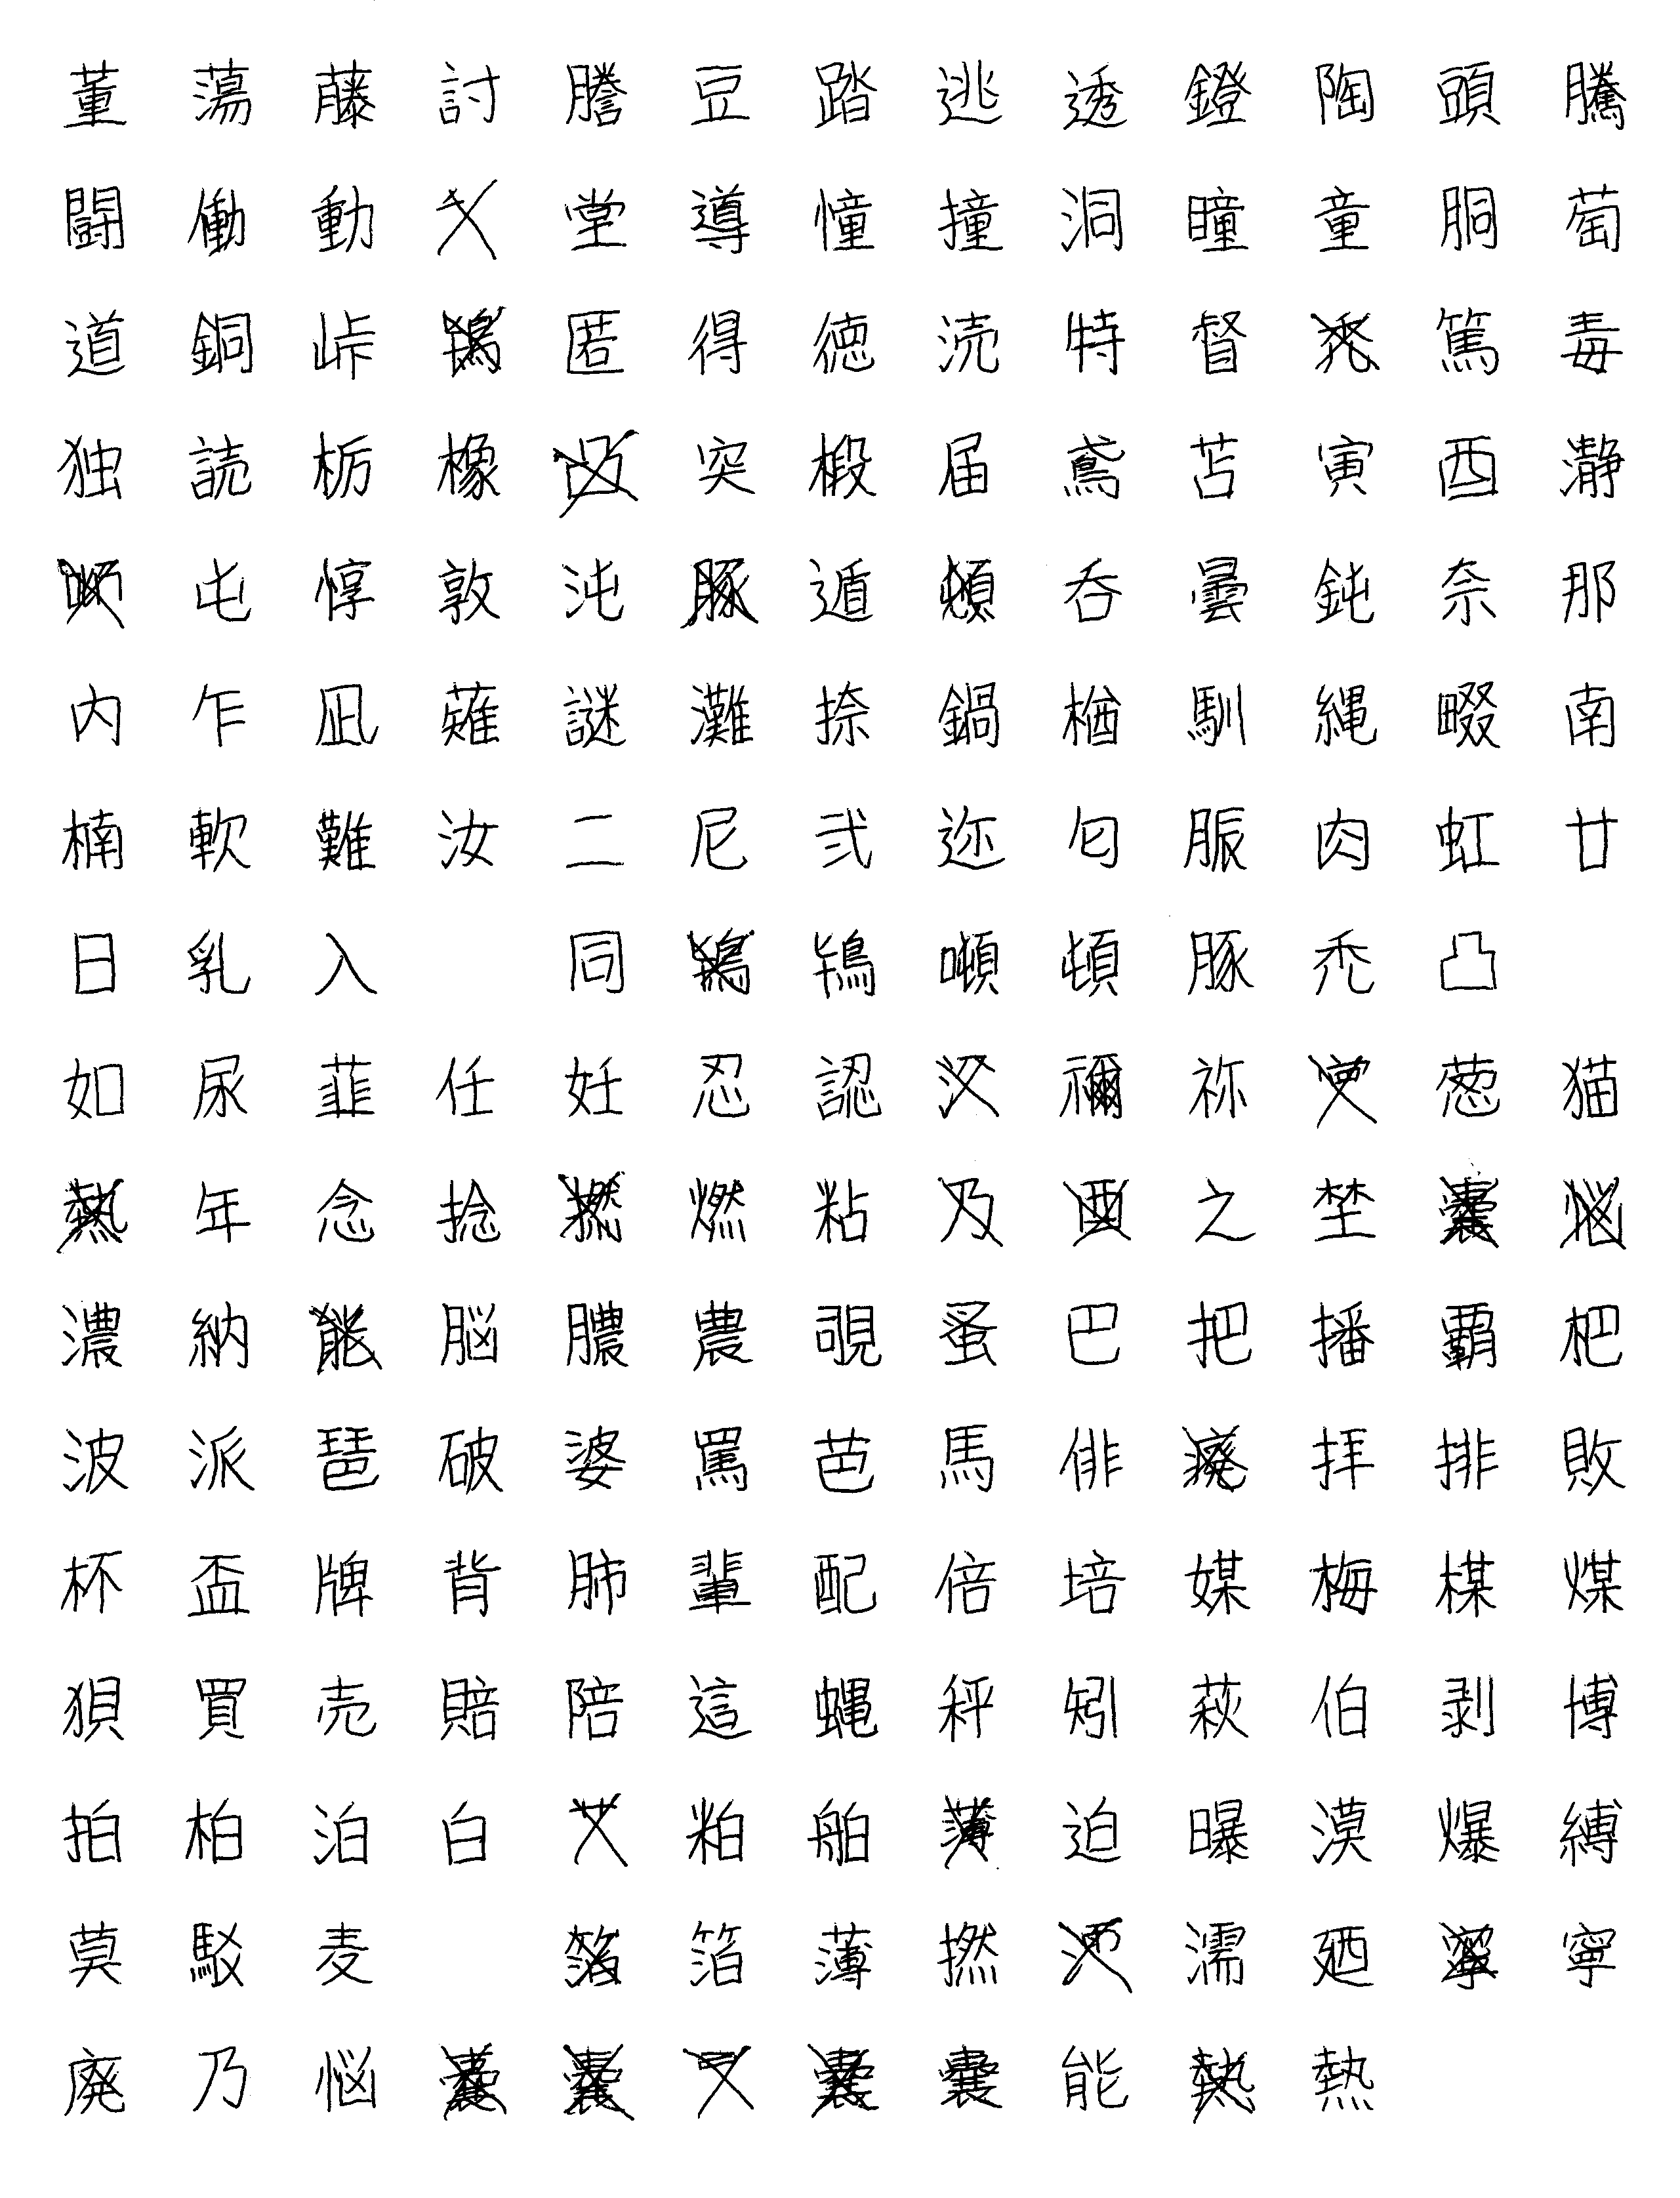 董 蕩 藤 討 謄 豆 踏 逃 透 鐙 陶 頭 騰
闘 働 動 堂 導 憧 撞 洞 瞳 童 胴 萄
道 銅 峠 匿 得 徳 涜 特 督 篤 毒
独 読 栃 橡 突 椴 届 鳶 苫 寅 酉 瀞
屯 惇 敦 沌 遁 呑 曇 鈍 奈 那
内 乍 凪 薙 謎 灘 捺 鍋 楢 馴 縄 畷 南
楠 軟 難 汝 二 尼 弐 迩 匂 賑 肉 虹 廿
日 乳 入 同 鴇 噸 頓 豚 禿 凸
如 尿 韮 任 妊 忍 認 禰 祢 葱 猫
年 念 捻 燃 粘 之 埜
濃 納 脳 膿 農 覗 蚤 巴 把 播 覇 杷
波 派 琶 破 婆 罵 芭 馬 俳 拝 排 敗
杯 盃 牌 背 肺 輩 配 倍 培 媒 梅 楳 煤
狽 買 売 賠 陪 這 蝿 秤 矧 萩 伯 剥 博
拍 柏 泊 白 粕 舶 迫 曝 漠 爆 縛
莫 駁 麦 箔 薄 撚 濡 廼 寧
廃 乃 悩 嚢 能 熱